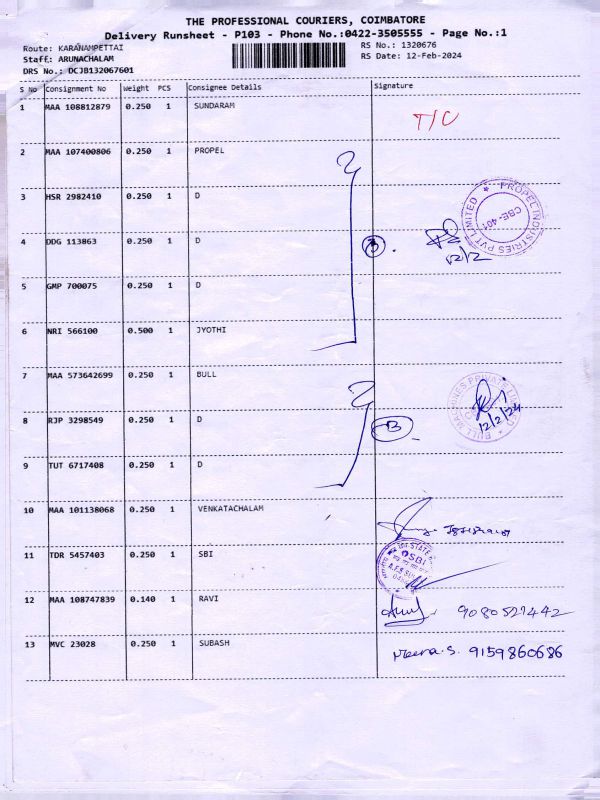 THE PROFESSIONAL COURIERS, COIMBATORE
Delivery Runsheet - P103 - Phone No.:0422-3505555 - Page No.:1
Route: KARANAMPETTAI RS No.: 1320676
Staff: ARUNACHALAM RS Date: 12-Feb-2024
DRS No.: DCJB132067601
S No Consignment No Weight PCS Consignee Details Signature
1 MAA 108812879 0.250 1 SUNDARAM T/C
2 MAA 107400806 0.250 1 PROPEL
3 HSR 2982410 0.250 1 D
PROPEL INDUSTRIES PVT LIMITED
CBE-401
4 DDG 113863 0.250 1 D 12/2
5 GMP 700075 0.250 1 D
6 NRI 566100 0.500 1 JYOTHI
7 MAA 573642699 0.250 1 BULL
BULL MACHINES PRIVATE LIMITED
12/2/24
8 RJP 3298549 0.250 1 D
9 TUT 6717408 0.250 1 D
10 MAA 101138068 0.250 1 VENKATACHALAM
11 TDR 5457403 0.250 1 SBI
SBI
12 MAA 108747839 0.140 1 RAVI 9080527442
13 MVC 23028 0.250 1 SUBASH Meera.S. 9159860686